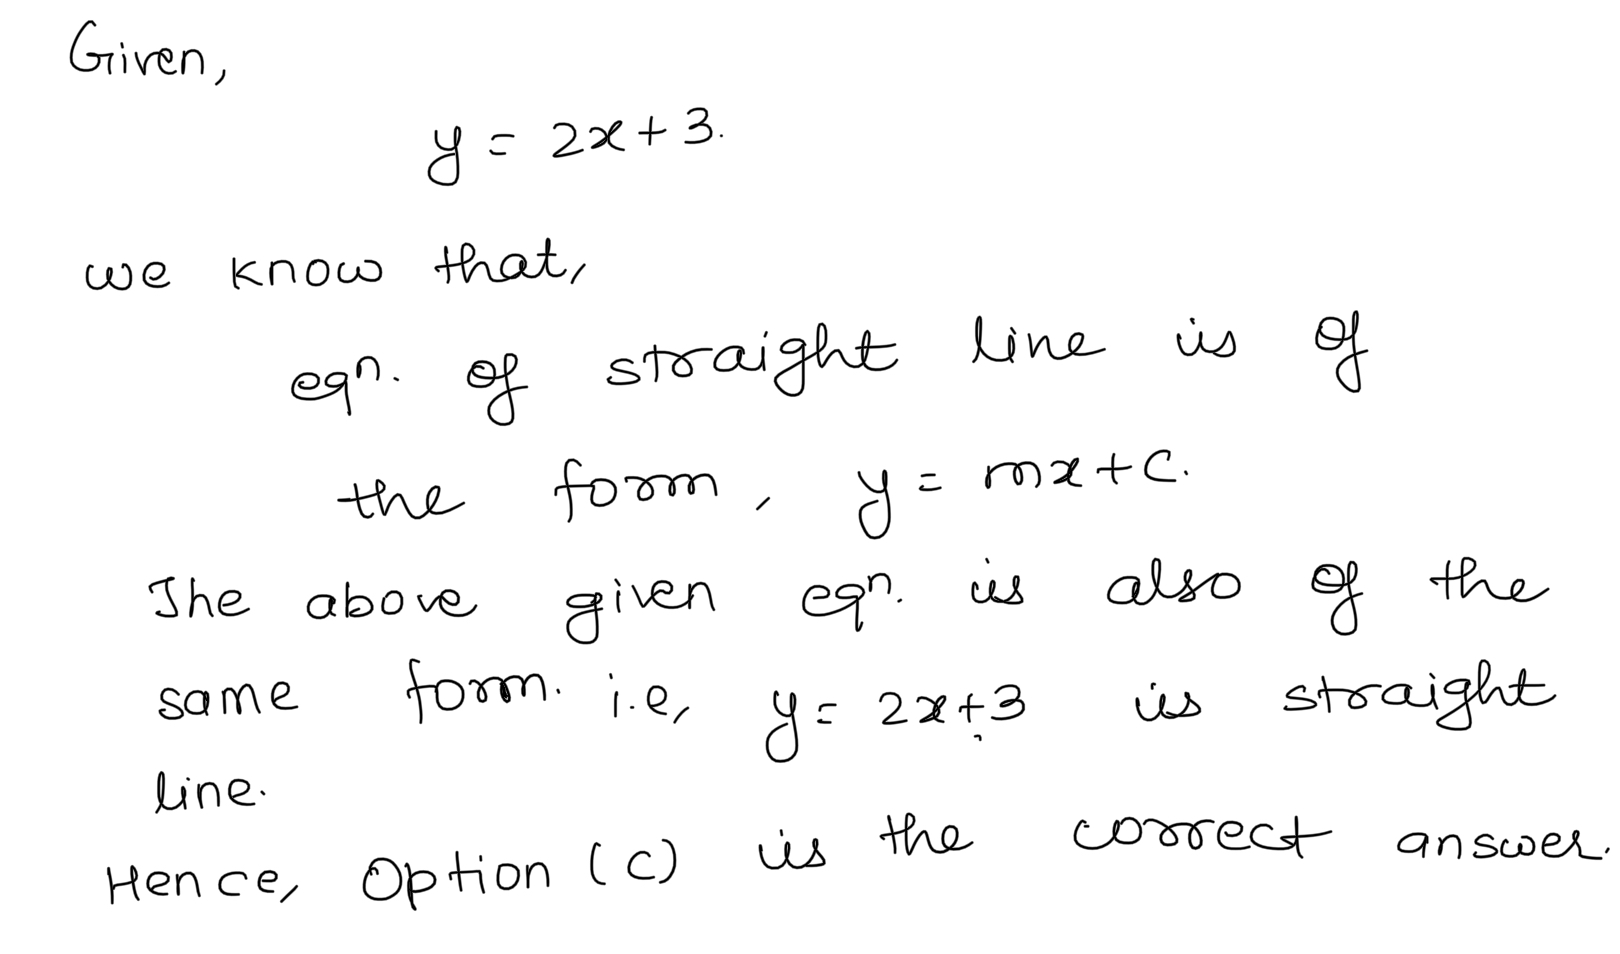 Given,
y = 2x + 3.
we know that,
eqn. of straight line is of
the form, y = mx + c.
The above given eqn. is also of the
same form. i.e, y = 2x+3 is straight
line.
Hence, Option (C) is the correct answer.